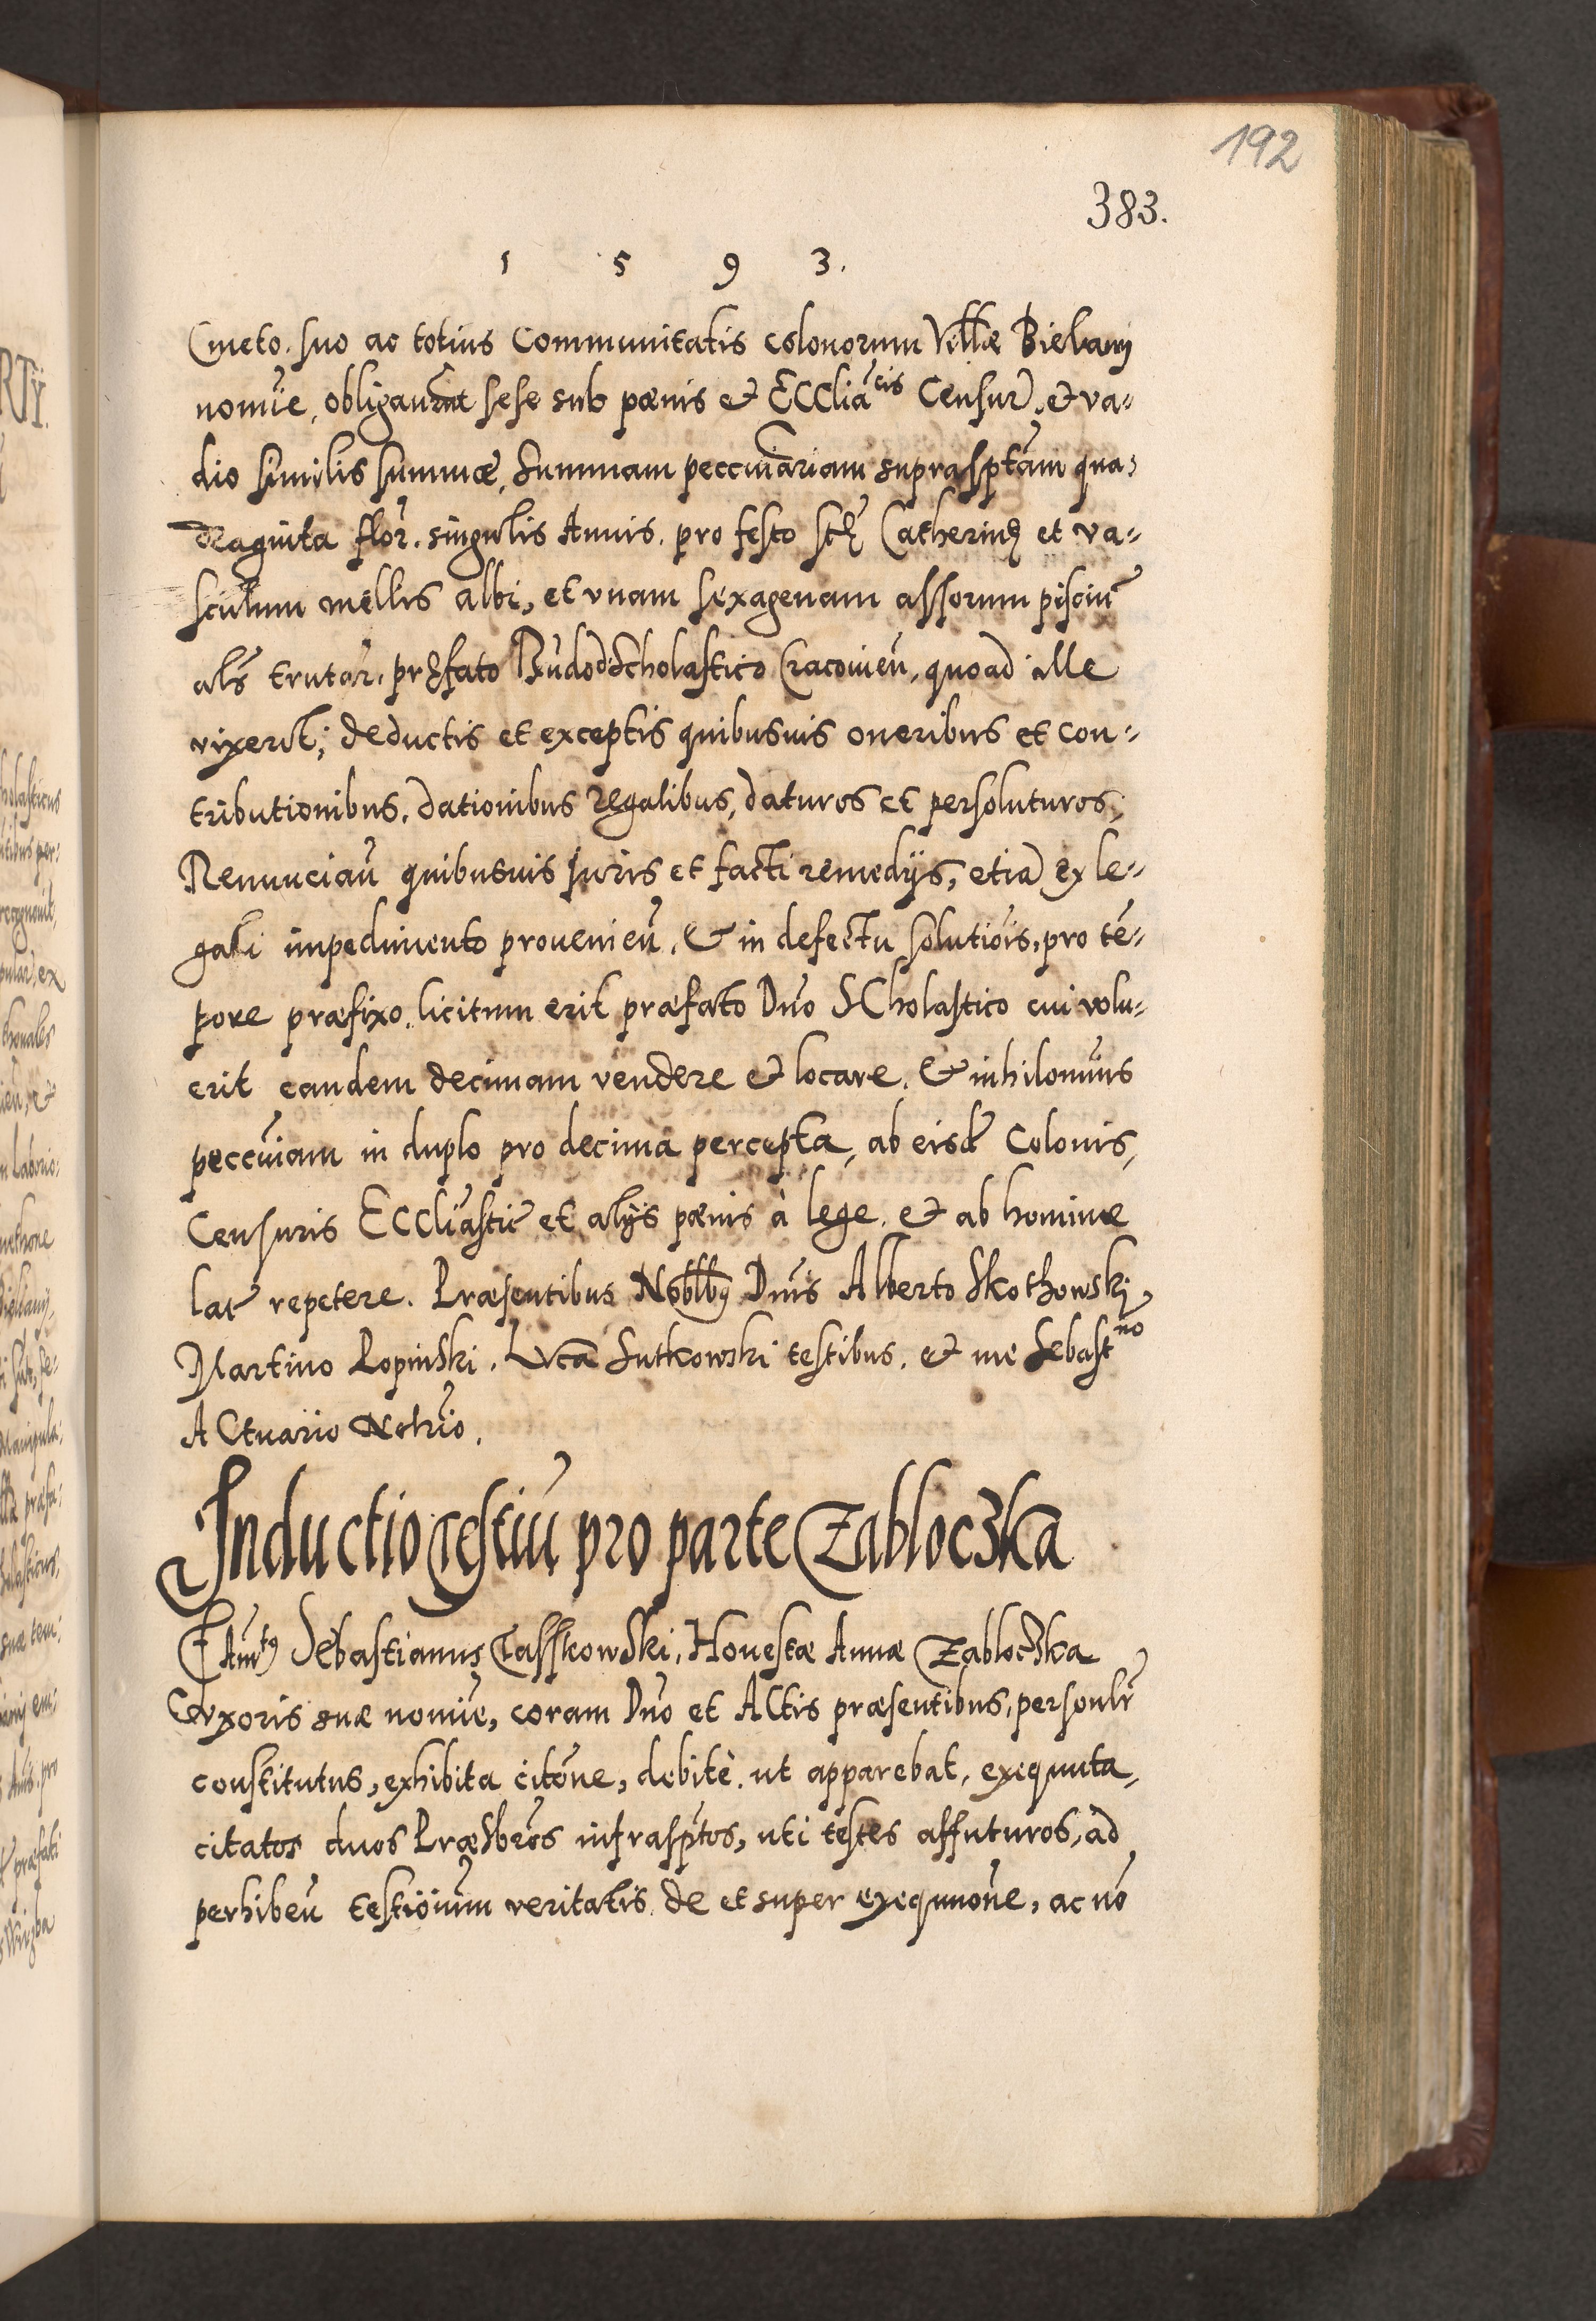 192
383.
1 5 9 3.
Cmeto. suo ac totius Communitatis colonorum Villæ Bielany
nomĩe, obligaurũt sese sub pænis et ECCliãcis Censur. et va=
dio similis summæ, Summam peccuniariam suprasptam qua=
draginta flor. singulis Annis. pro festo stę Catherinę et va=
sculum mellis albi, et vnam sexagenam assorum pisciũ
als trutar. pręfato Scholastico Cracouien̄, quoad ille
vixerit; deductis et exceptis quibusuis oneribus et con=
tributionibus, dationibus regalibus, daturos et persoluturos;
Renunciañ quibusuis Juris et facti remedijs, etia ex le=
gali impedimento prouenien̄. & in defectu solutiõis, pro tẽ=
pore præfixo. licitum erit præfato Dño SCholastico cui volu=
erit eandem decimam vendere et locare. & nihilomĩus
peccuniam in duplo pro decima percepta, ab eisd Colonis,
Censuris ECCliãstic et alijs pænis à lege. et ab homine
lat repetere. Præsentibus Noblbg Dñis Alberto Skothowski,
Martino Lopinski. Lvca Sutkowski testibus. et me Sebastno
ACtuario Notrio.
Inductio Testiũ pro parte Zabloczka
Famtg Sebastianus Tasskowski, Honestæ Annæ Zabloczka
Vxoris suæ nomĩe, coram Dño et ACtis præsentibus, personlr
constitutus, exhibita citõne, debitè. ut apparebat, exequuta,
citatos duos Præsbros infrasptos, uti testes affuturos, ad
perhibeñ testiõium veritatis de et super exequuõne, ac nõ